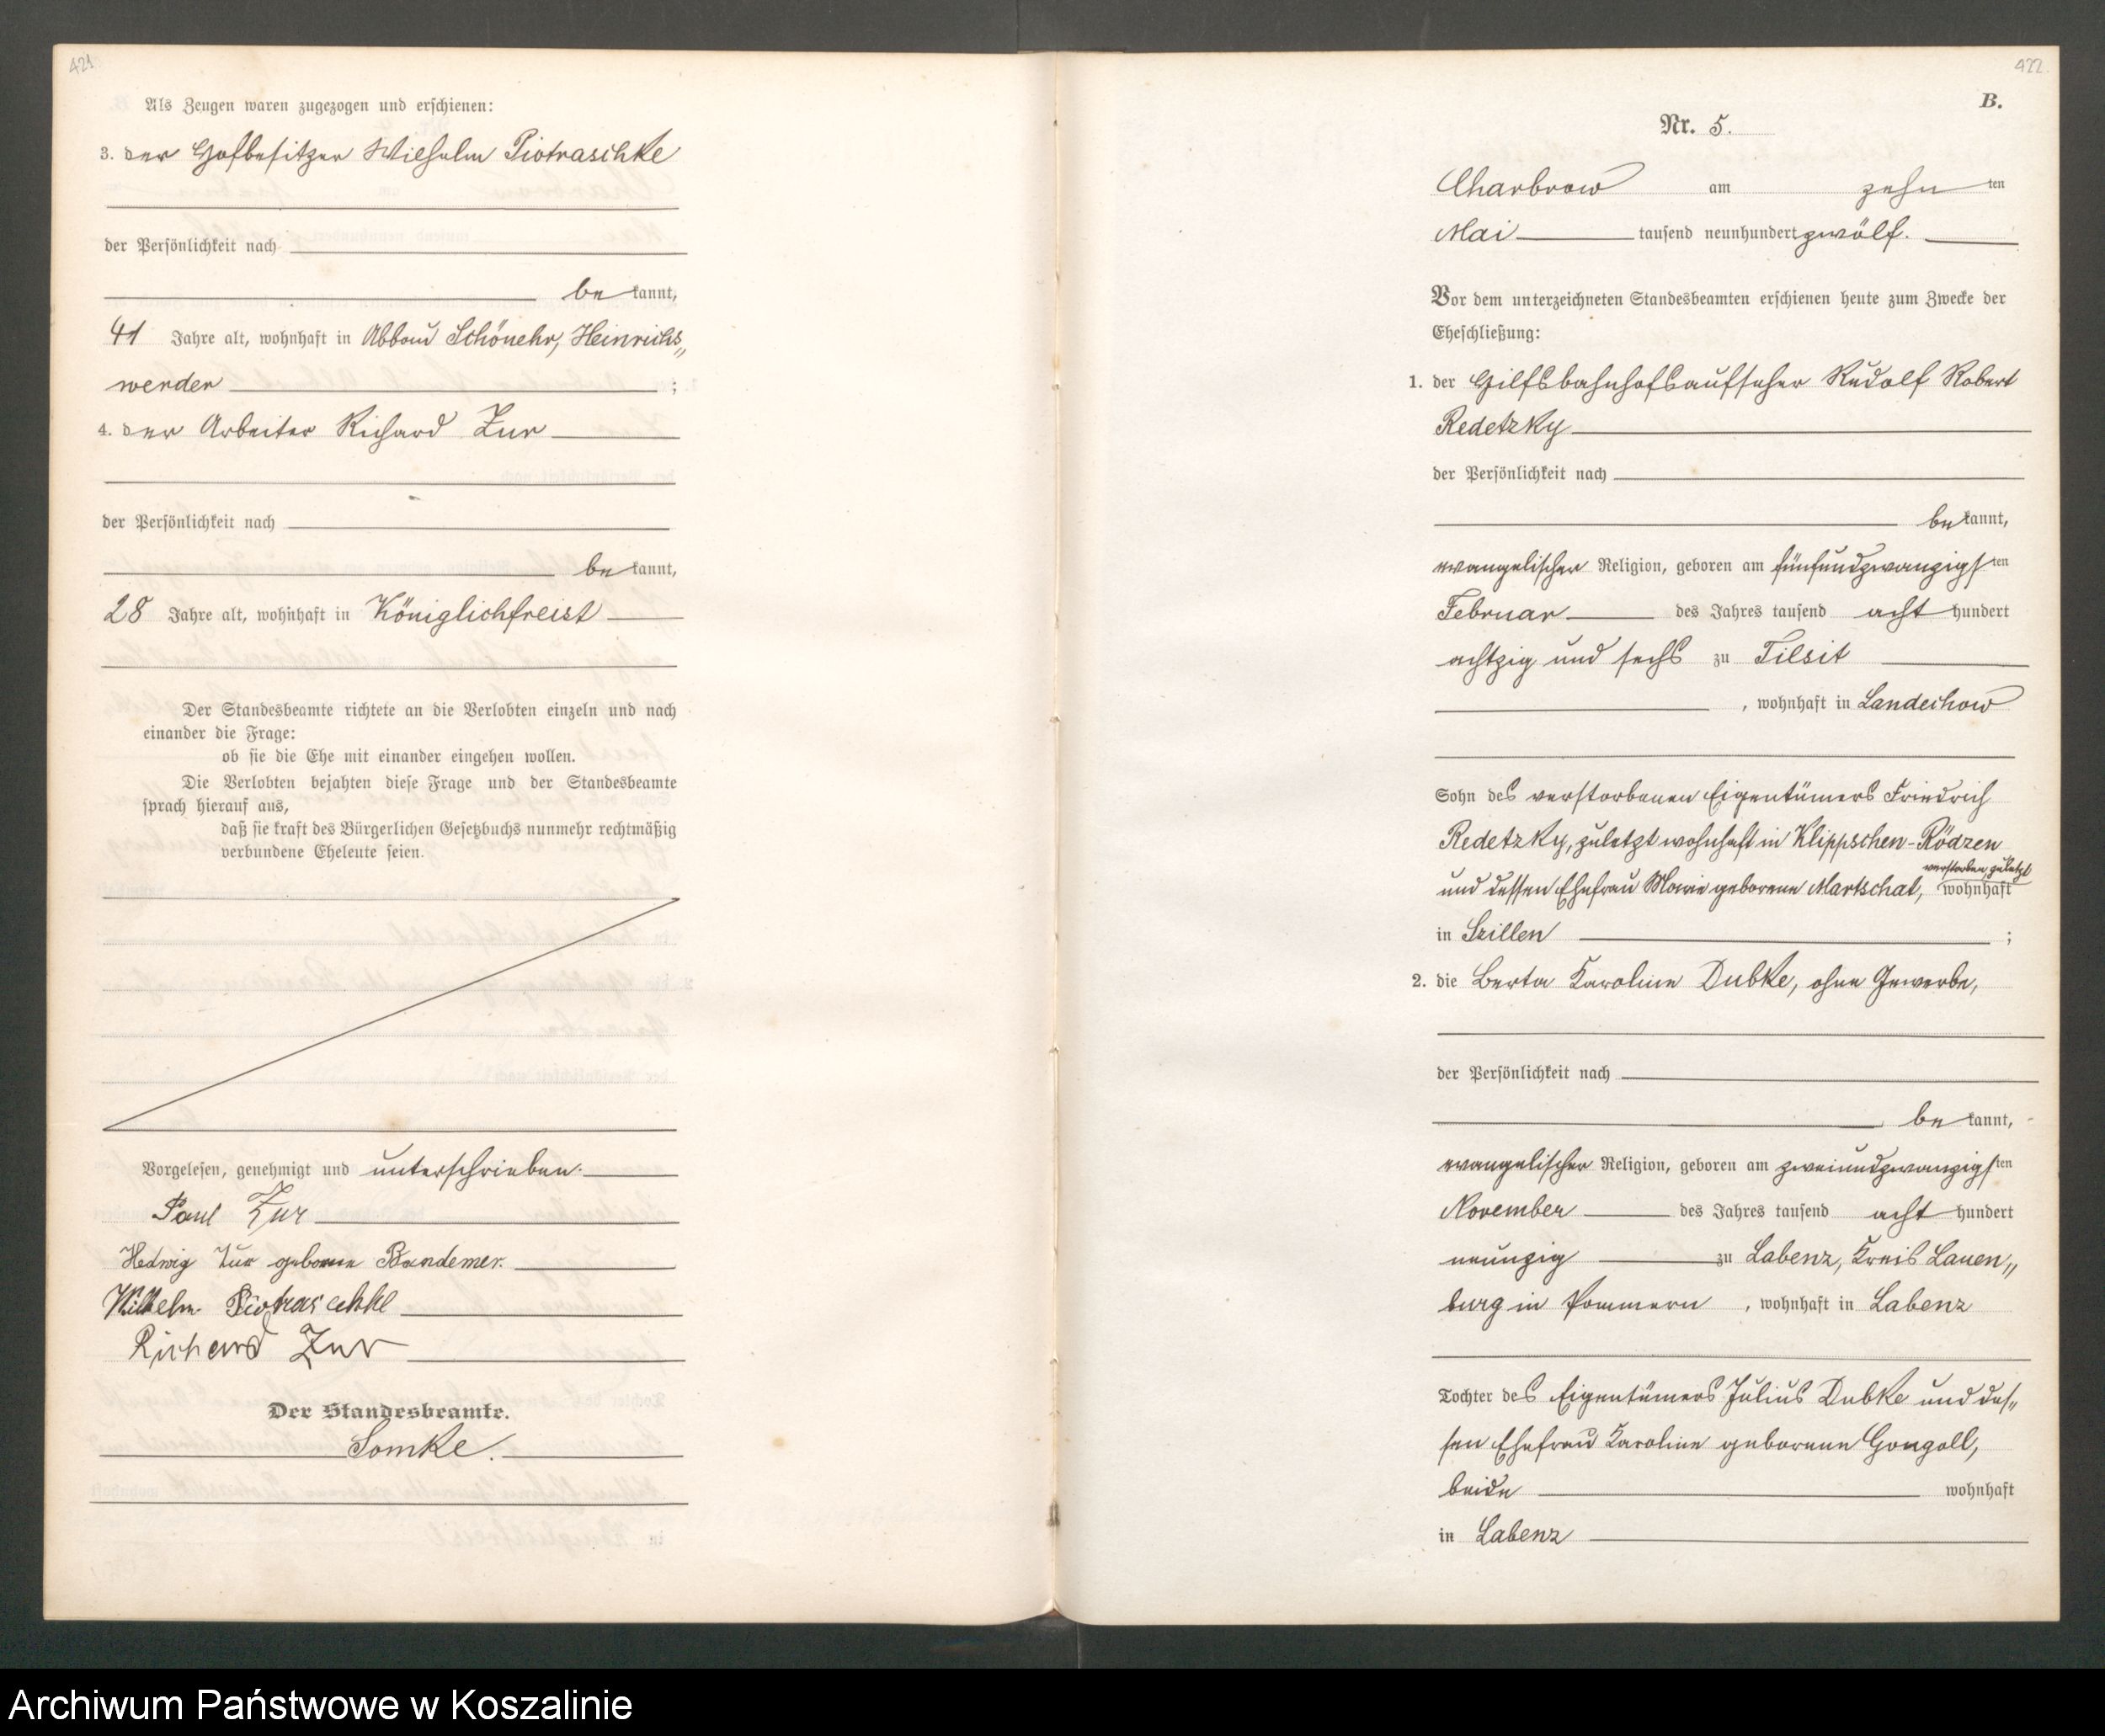 421
Als Zeugen waren zugezogen und erschienen:
3. der Hofbesitzer Wilhelm Piotraschke
der Persönlichkeit nach
be kannt,
41 Jahre alt, wohnhaft in Abbau Schönehr, Heinrichs„
werder ;
4. der Arbeiter Richard Zur
der Persönlichkeit nach
be kannt,
28 Jahre alt, wohnhaft in Königlichfreist
Der Standesbeamte richtete an die Verlobten einzeln und nach
einander die Frage:
ob sie die Ehe mit einander eingehen wollen.
Die Verlobten bejahten diese Frage und der Standesbeamte
sprach hierauf aus,
daß sie kraft des Bürgerlichen Gesetzbuchs nunmehr rechtmäßig
verbundene Eheleute seien.
Vorgelesen, genehmigt und unterschrieben.
Paul Zur
Hedwig Zur geborene Bandemer.
Wilhelm Piotraschke
Richard Zur
Der Standesbeamte.
Somke.
422.
B.
Nr. 5.
Charbrow am zehn ten
Mai tausend neunhundert zwölf.
Vor dem unterzeichneten Standesbeamten erschienen heute zum Zwecke der
Eheschließung:
1. der Hilfsbahnhofsaufseher Rudolf Robert
Redetzky
der Persönlichkeit nach
be kannt,
evangelischer Religion, geboren am fünfundzwanzigs ten
Februar des Jahres tausend acht hundert
achtzig und sechs zu Tilsit
, wohnhaft in Landechow
Sohn des verstorbenen Eigentümers Friedrich
Redetzky, zuletzt wohnhaft in Klippschen-Rödzen
und dessen Ehefrau Marie geborene Martschat, verstorben, zuletzt wohnhaft
in Szillen ;
2. die Berta Karoline Dubke, ohne Gewerbe,
der Persönlichkeit nach
be kannt,
evangelischer Religion, geboren am zweiundzwanzigs ten
November des Jahres tausend acht hundert
neunzig zu Labenz, Kreis Lauen„
burg in Pommern , wohnhaft in Labenz
Tochter des Eigentümers Julius Dubke und des„
sen Ehefrau Karoline geborene Gongoll,
beide wohnhaft
in Labenz
Archiwum Państwowe w Koszalinie